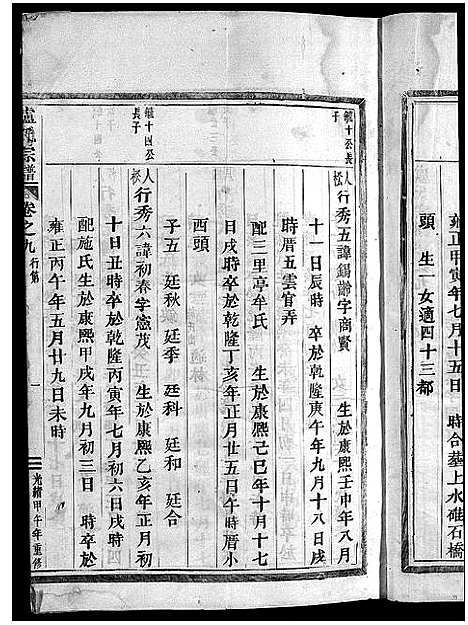 雍正甲寅年七月十五日　時合葬上水碓石橋
頭　生一女適四十三都
毓十公長子
人松行秀五諱錫齡字商賢　生於康熙壬申年八月
十一日辰時　卒於乾隆庚午年九月十八日戌
時厝五雲官弄
配三里亭牟氏　生於康熙己巳年十月十七
日戌時卒於乾隆丁亥年正月廿五日午時厝小
西頭
子五　廷秋　廷季　廷科　廷和　廷合
毓十四公長子
人松行六諱初春字憲茂　生於康熙乙亥年正月初
十日丑時卒於乾隆丙寅年七月初六日戌時
配施氏生於康熙甲戌年九月初三日　時卒於
雍正丙午年五月廿九日未時
宗譜　卷之九　行第　一　光緒甲午年重修